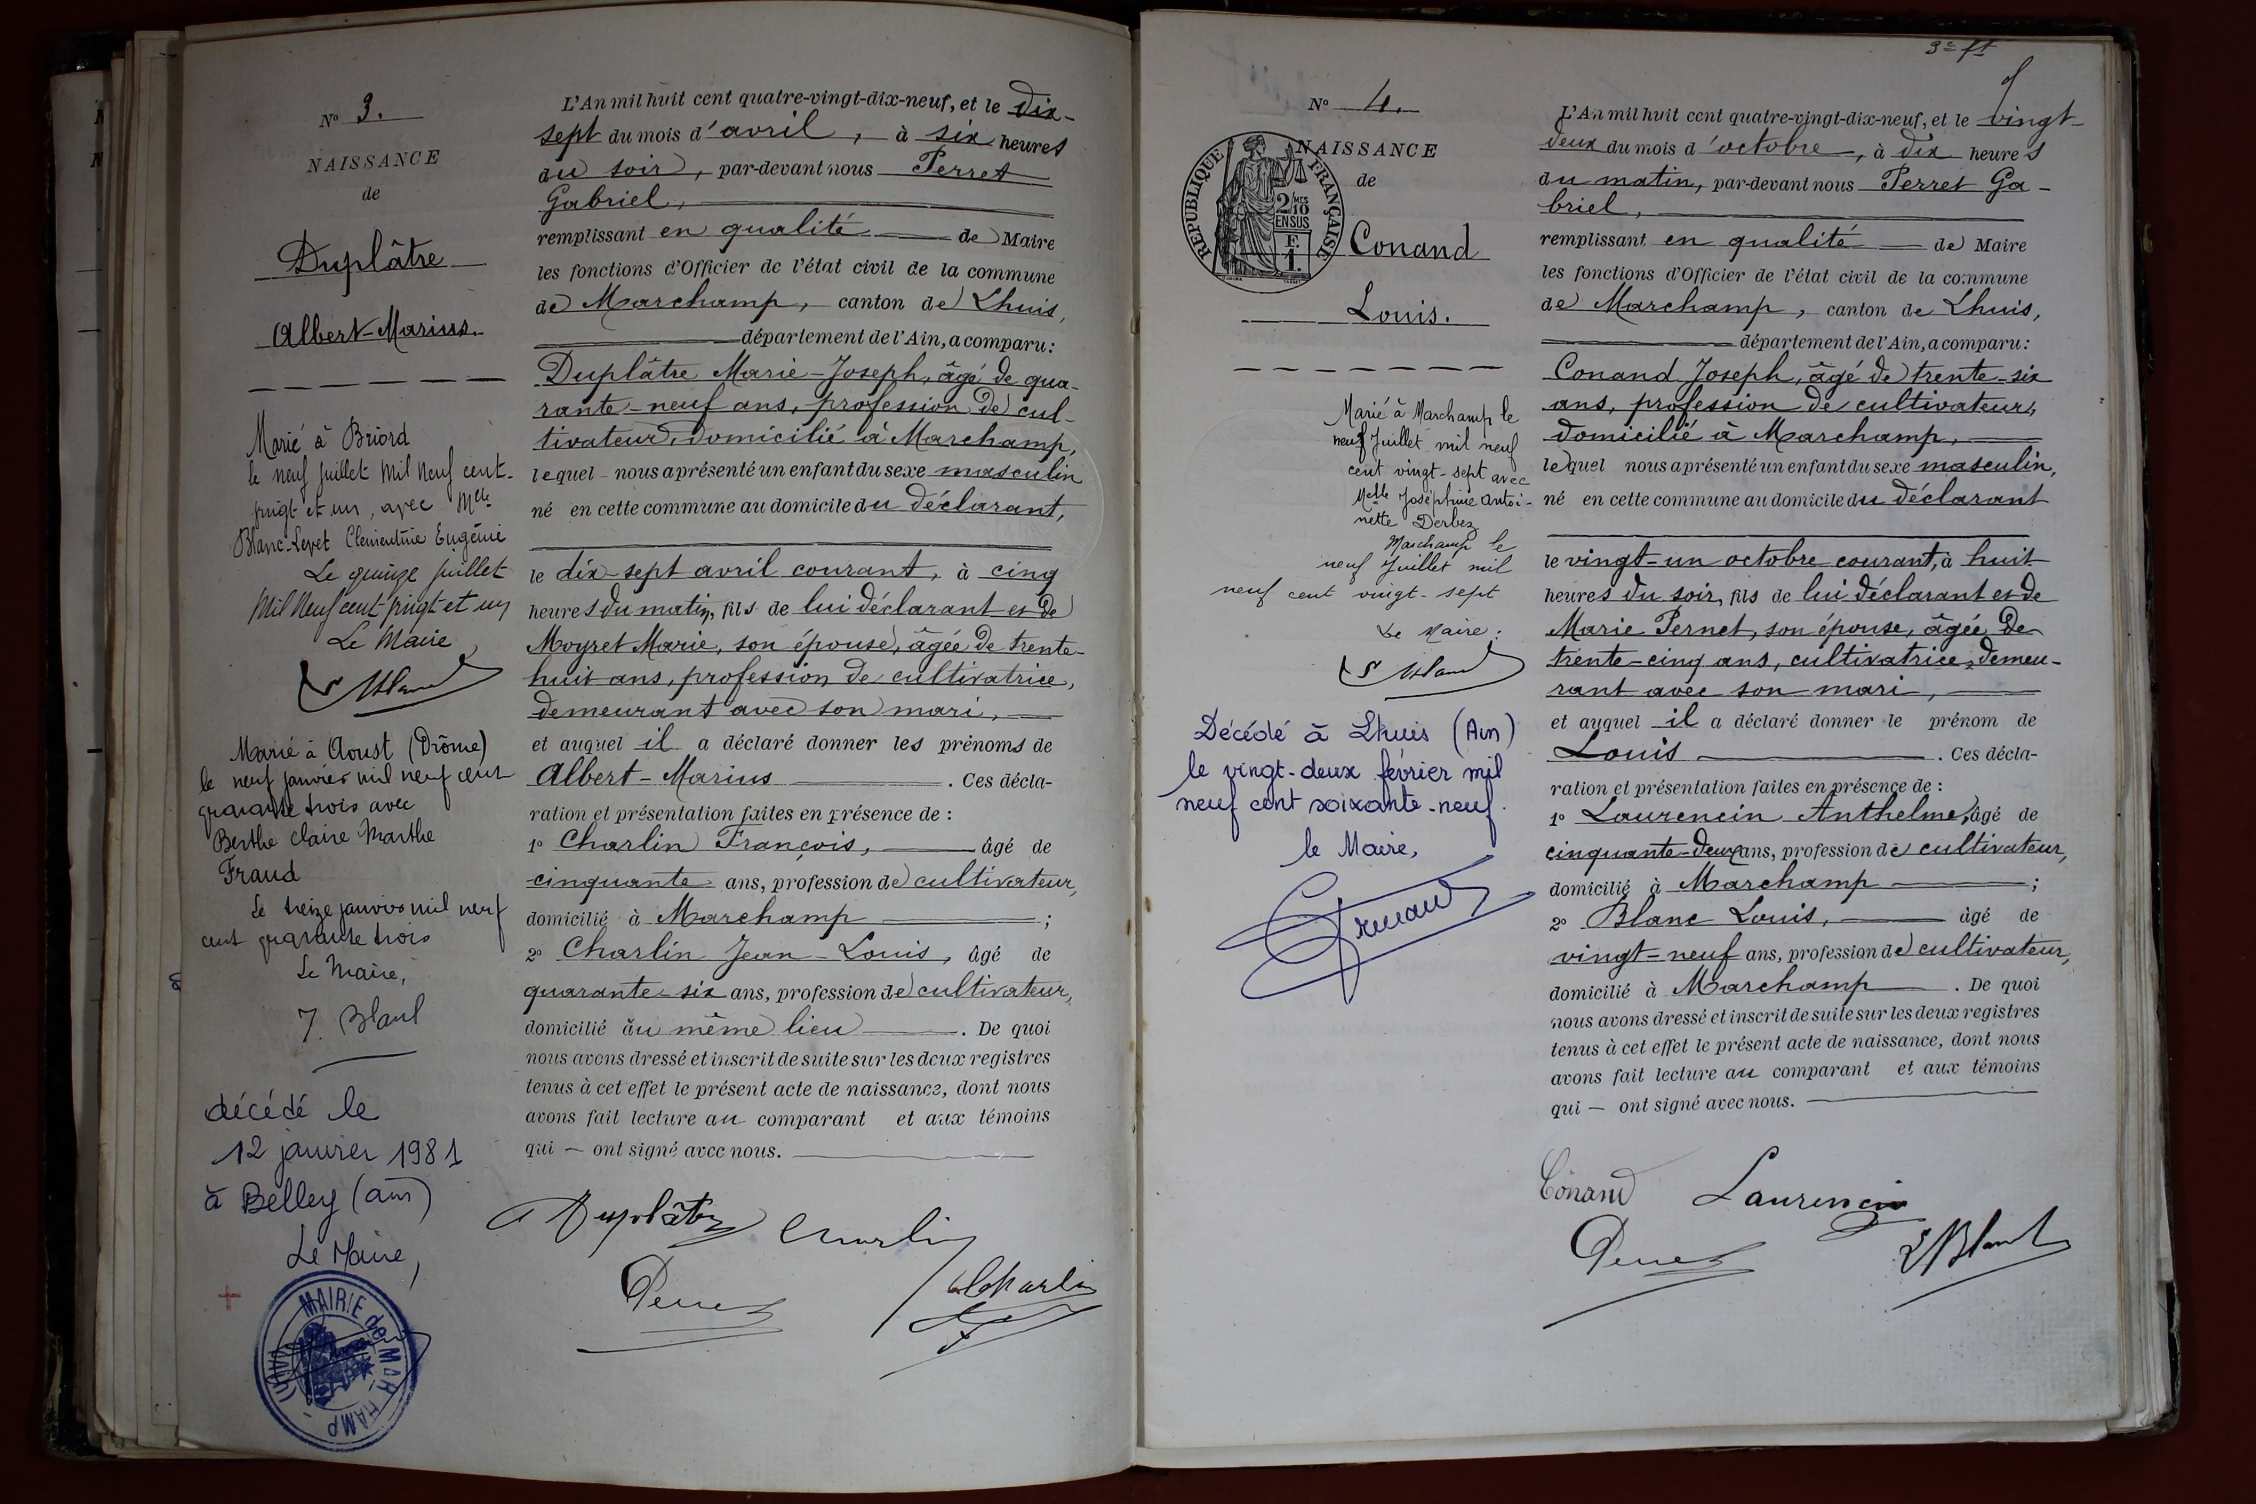 N° 3.
NAISSANCE
de
Duplâtre
Albert-Marius.
Marié à Briord
le neuf juillet Mil Neuf cent-
vingt et un, avec Melle
Blanc-Levet Clémentine Eugénie
Le quinze juillet
Mil Neuf cent vingt et un
Le Maire
Marié à Aoust (Drôme)
le neuf janvier mil neuf cent
quarante trois avec
Berthe Claire Marthe
Fraud
Le treize janvier mil neuf
cent quarante trois
Le Maire,
décédé le
12 janvier 1981
à Belley (ain)
Le Maire,
MAIRIE de MARCHAMP - (AIN)
L'An mil huit cent quatre-vingt-dix-neuf, et le dix-
sept du mois d'avril, à six heures
du soir, par-devant nous Perret
Gabriel,
remplissant en qualité de Maire
les fonctions d'Officier de l'état civil de la commune
de Marchamp, canton de Lhuis,
département de l'Ain, a comparu:
Duplâtre Marie-Joseph, âgé de qua-
rante-neuf ans, profession de cul-
tivateur, domicilié à Marchamp,
lequel nous a présenté un enfant du sexe masculin
né en cette commune au domicile du déclarant,
le dix-sept avril courant, à cinq
heures du matin, fils de lui déclarant et de
Moyret Marie, son épouse, âgée de trente-
huit ans, profession de cultivatrice,
demeurant avec son mari,
et auquel il a déclaré donner les prénoms de
Albert-Marius. Ces décla-
ration et présentation faites en présence de :
1° Charlin François, âgé de
cinquante ans, profession de cultivateur,
domicilié à Marchamp ;
2° Charlin Jean-Louis, âgé de
quarante-six ans, profession de cultivateur,
domicilié au même lieu. De quoi
nous avons dressé et inscrit de suite sur les deux registres
tenus à cet effet le présent acte de naissance, dont nous
avons fait lecture au comparant et aux témoins
qui — ont signé avec nous.
Duplâtre Charlin
Perret Charlin
3e ft
N° 4.
NAISSANCE
de
RÉPUBLIQUE FRANÇAISE
2/10 MES
EN SUS
F.
1.
Conand
Louis.
Marié à Marchamp le
neuf Juillet mil neuf
cent vingt-sept avec
Melle Joséphine Antoi-
nette Derbez
Marchamp le
neuf Juillet mil
neuf cent vingt-sept
Le Maire:
Décédé à Lhuis (Ain)
le vingt-deux février mil
neuf cent soixante-neuf.
le Maire,
L'An mil huit cent quatre-vingt-dix-neuf, et le vingt-
deux du mois d'octobre, à dix heures
du matin, par-devant nous Perret Ga-
briel,
remplissant en qualité de Maire
les fonctions d'Officier de l'état civil de la commune
de Marchamp, canton de Lhuis,
département de l'Ain, a comparu:
Conand Joseph, âgé de trente-six
ans, profession de cultivateur,
domicilié à Marchamp,
lequel nous a présenté un enfant du sexe masculin,
né en cette commune au domicile du déclarant
le vingt-un octobre courant, à huit
heures du soir, fils de lui déclarant et de
Marie Pernet, son épouse, âgée de
trente-cinq ans, cultivatrice, demeu-
rant avec son mari,
et auquel il a déclaré donner le prénom de
Louis. Ces décla-
ration et présentation faites en présence de :
1° Laurencin Anthelme, âgé de
cinquante-deux ans, profession de cultivateur,
domicilié à Marchamp ;
2° Blanc Louis, âgé de
vingt-neuf ans, profession de cultivateur,
domicilié à Marchamp. De quoi
nous avons dressé et inscrit de suite sur les deux registres
tenus à cet effet le présent acte de naissance, dont nous
avons fait lecture au comparant et aux témoins
qui — ont signé avec nous.
Conand Laurencin
Perret L Blanc